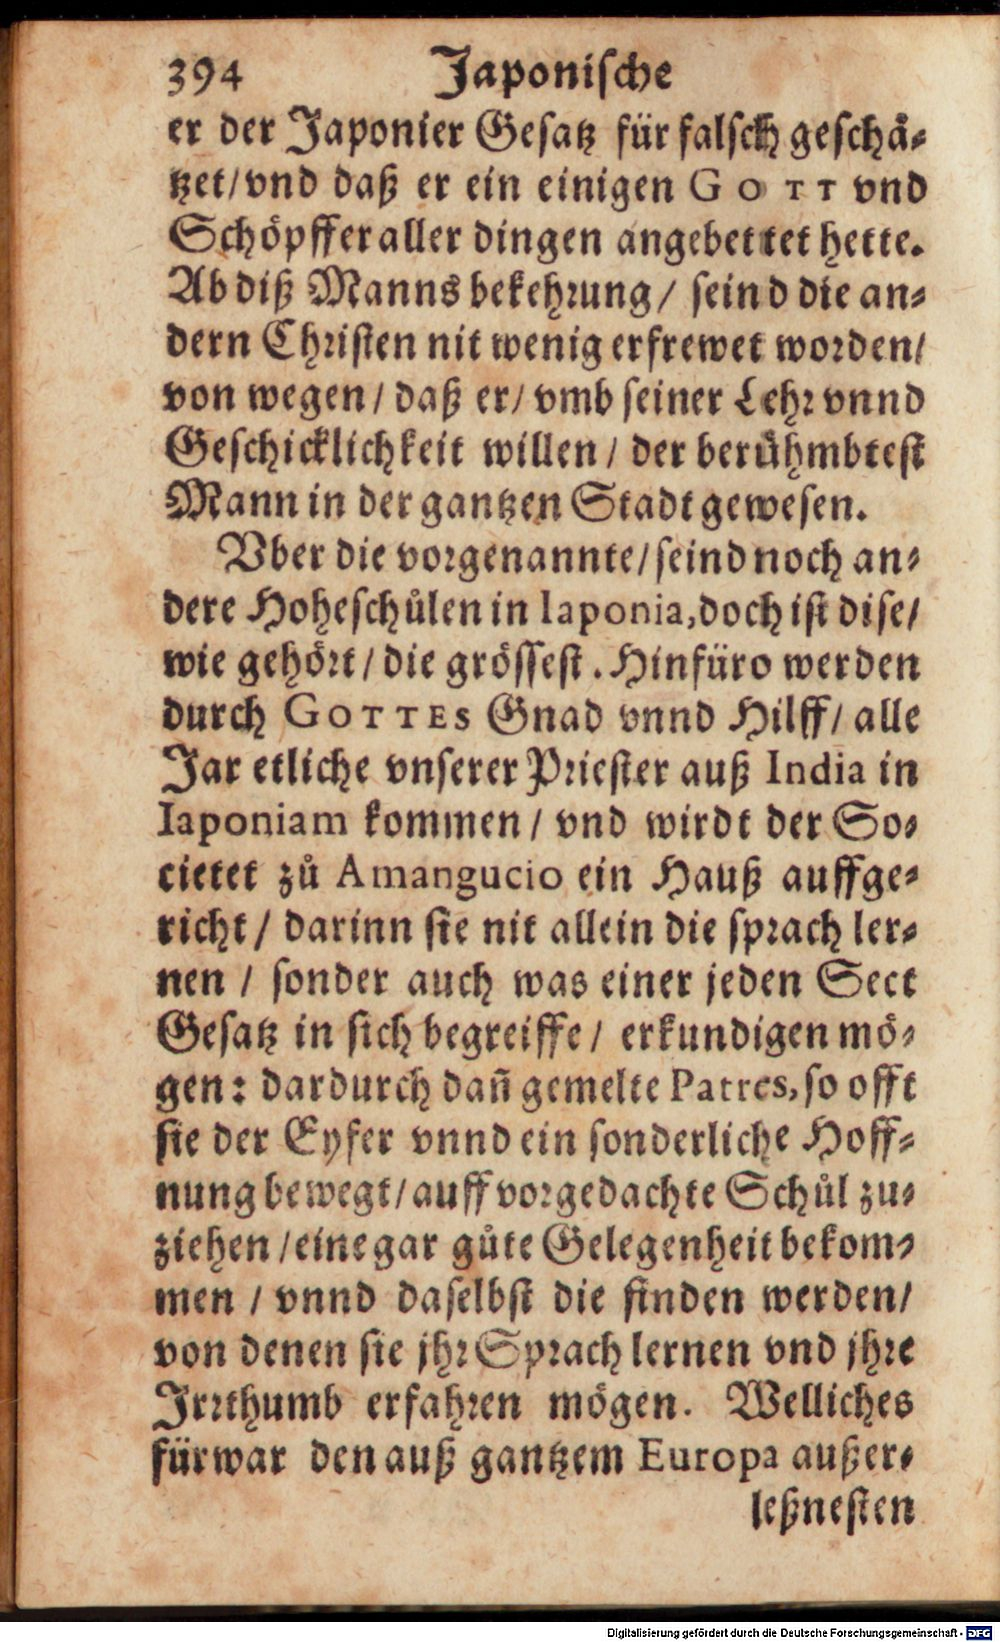 394 Japonische
er der Japonier Gesatz für falsch geschå-
tzet/vnd daß er ein einigen GOTT vnd
Schöpffer aller dingen angebettet hette.
Ab diß Manns bekehrung/ seind die an-
dern Christen nit wenig erfrewet worden/
von wegen/ daß er/ vmb seiner Lehr vnnd
Geschicklichkeit willen/ der berühmbtest
Mann in der gantzen Stadt gewesen.
Vber die vorgenannte/seind noch an-
dere Hoheschůlen in Iaponia, doch ist dise/
wie gehört/ die grössest. Hinfüro werden
durch GOTTES Gnad vnnd Hilff/ alle
Jar etliche vnserer Priester auß India in
Iaponiam kommen/ vnd wirdt der So-
cietet zů Amangucio ein Hauß auffge-
richt/ darinn sie nit allein die sprach ler-
nen/ sonder auch was einer jeden Sect
Gesatz in sich begreiffe/ erkundigen mö-
gen: dardurch dañ gemelte Patres, so offt
sie der Eyfer vnnd ein sonderliche Hoff-
nung bewegt/auff vorgedachte Schůl zu-
ziehen/eine gar gůte Gelegenheit bekom-
men/ vnnd daselbst die finden werden/
von denen sie jhr Sprach lernen vnd jhre
Irrthumb erfahren mögen. Welliches
fürwar den auß gantzem Europa außer-
leßnesten
Digitalisierung gefördert durch die Deutsche Forschungsgemeinschaft - DFG